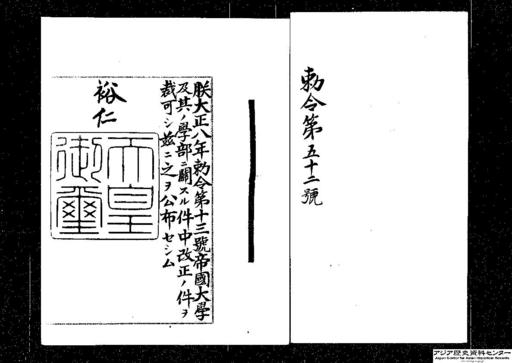 勅令第五十二號
朕大正八年勅令第十三號帝國大學
及其ノ學部ニ關スル件中改正ノ件ヲ
裁可シ茲ニ之ヲ公布セシム
裕仁
天皇
御璽
アジア歴史資料センター
Japan Center for Asian Historical Records